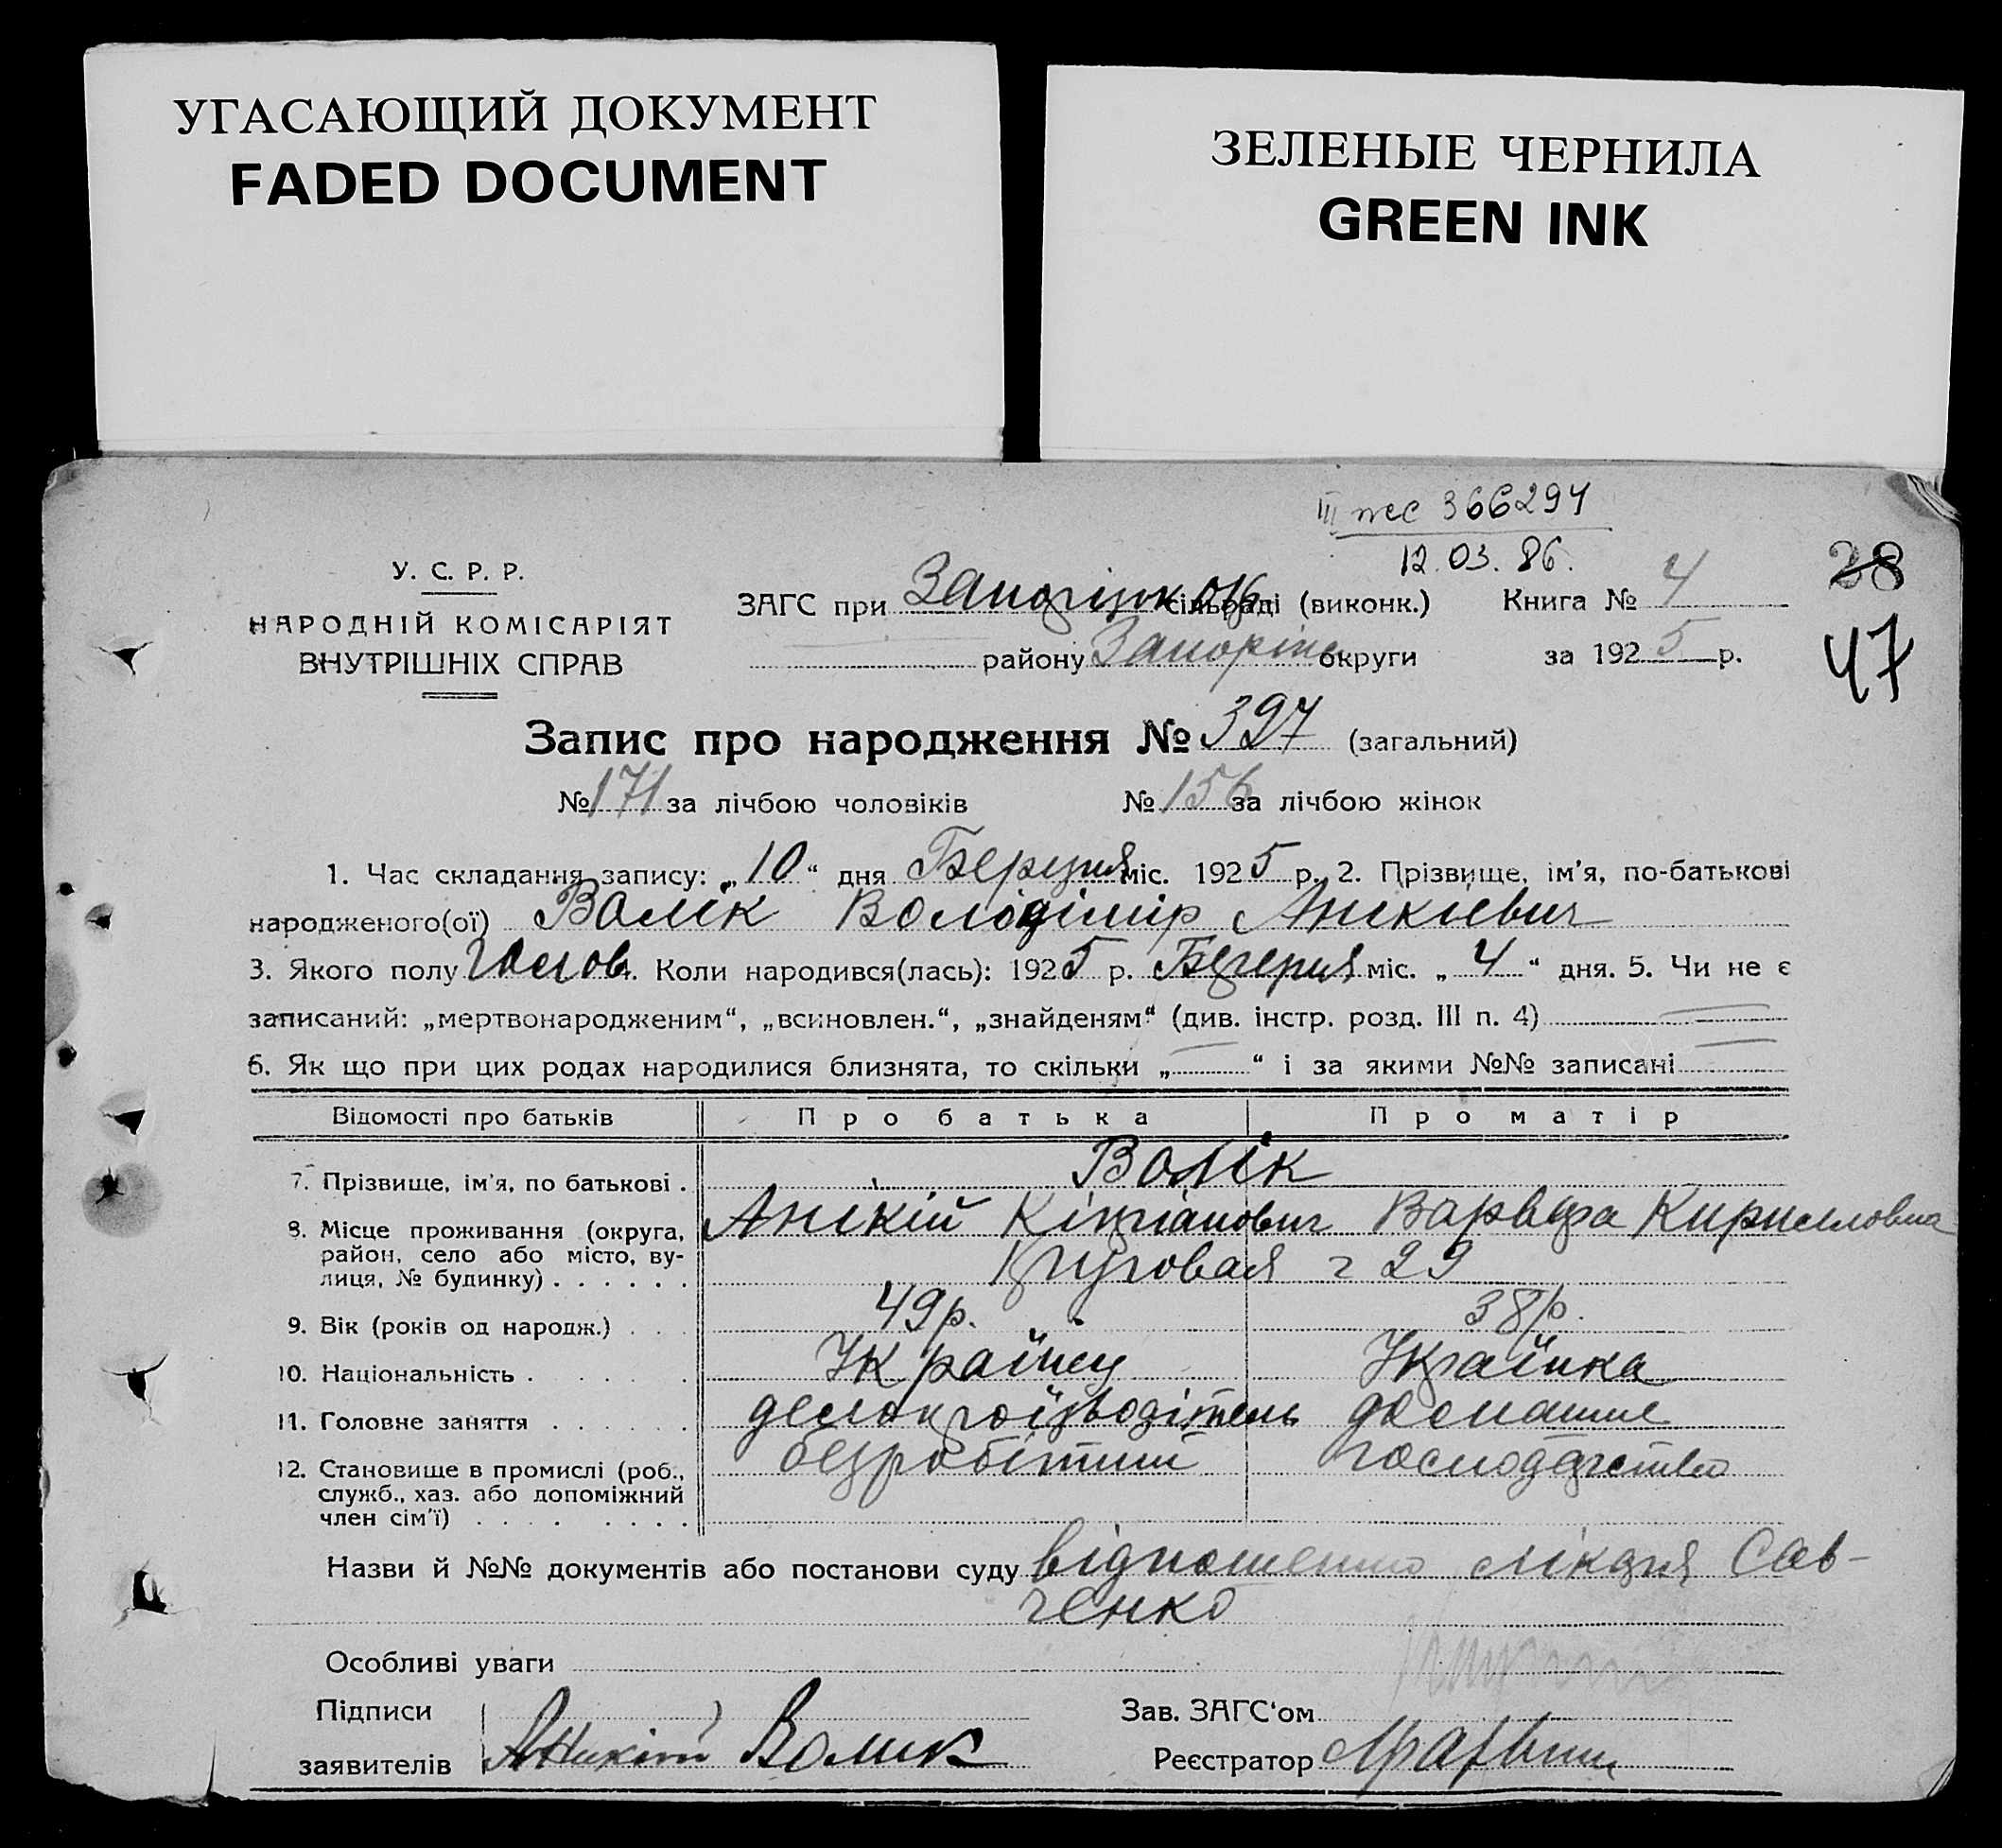 УГАСАЮЩИЙ ДОКУМЕНТ
FADED DOCUMENT
ЗЕЛЕНЫЕ ЧЕРНИЛА
GREEN INK
III жс 366294
12.03.86.
28
47
У. С. Р. Р.
НАРОДНІЙ КОМІСАРІЯТ
ВНУТРІШНІХ СПРАВ
ЗАГС при сільраді (виконк.) Книга № 4
району Запоріж округи за 1925 р.
Запис про народження № 397 (загальний)
№ 171 за лічбою чоловіків № 156 за лічбою жінок
1. Час складання запису: „10“ дня Березня міс. 1925 р. 2. Прізвище, ім'я, по-батькові
народженого(ої) Волік Володімір Анікіевич
3. Якого полу 4. Коли народився(лась): 1925 р. міс. „4“ дня. 5. Чи не є
записаний: „мертвонародженим“, „всиновлен.“, „знайденям“ (див. інстр. розд. III п. 4)
6. Як що при цих родах народилися близнята, то скільки „ “ і за якими №№ записані
Відомості про батьків Про батька Про матір
7. Прізвище, ім'я, по батькові . Волік
8. Місце проживання (округа, район, село або місто, вулиця, № будинку) . . . . . .
Анікій Кіпріанович Варвара Кирилловна
29
9. Вік (років од народж.) . . . 49р. 38р.
10. Національність . . . . . . Українец Українка
11. Головне заняття . . . . . . делопроізводітель домашне
12. Становище в промислі (роб., служб., хаз. або допоміжний член сім'ї) . . . . . . . .
безробітний господарство
Назви й №№ документів або постанови суду відношення лікаря Сав-
ченко
Особливі уваги
Підписи Зав. ЗАГС'ом
заявителів Аникий Волик Реєстратор